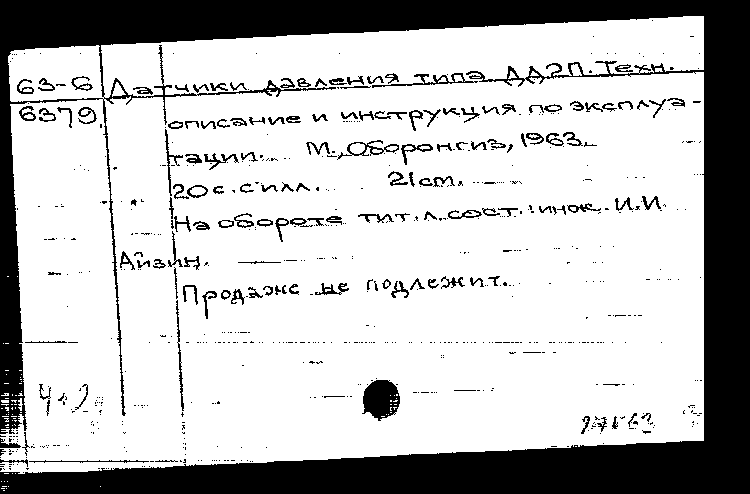 63-6 Датчики давления типа ДД2П. Техн.
6379. описание и инструкция по эксплуа-
тации. М., Оборонгиз, 1963.
20 с. с илл. 21 cm.
На обороте тит. л. сост.: инж. И.И.
Айзин.
Продаже не подлежит.
4+2